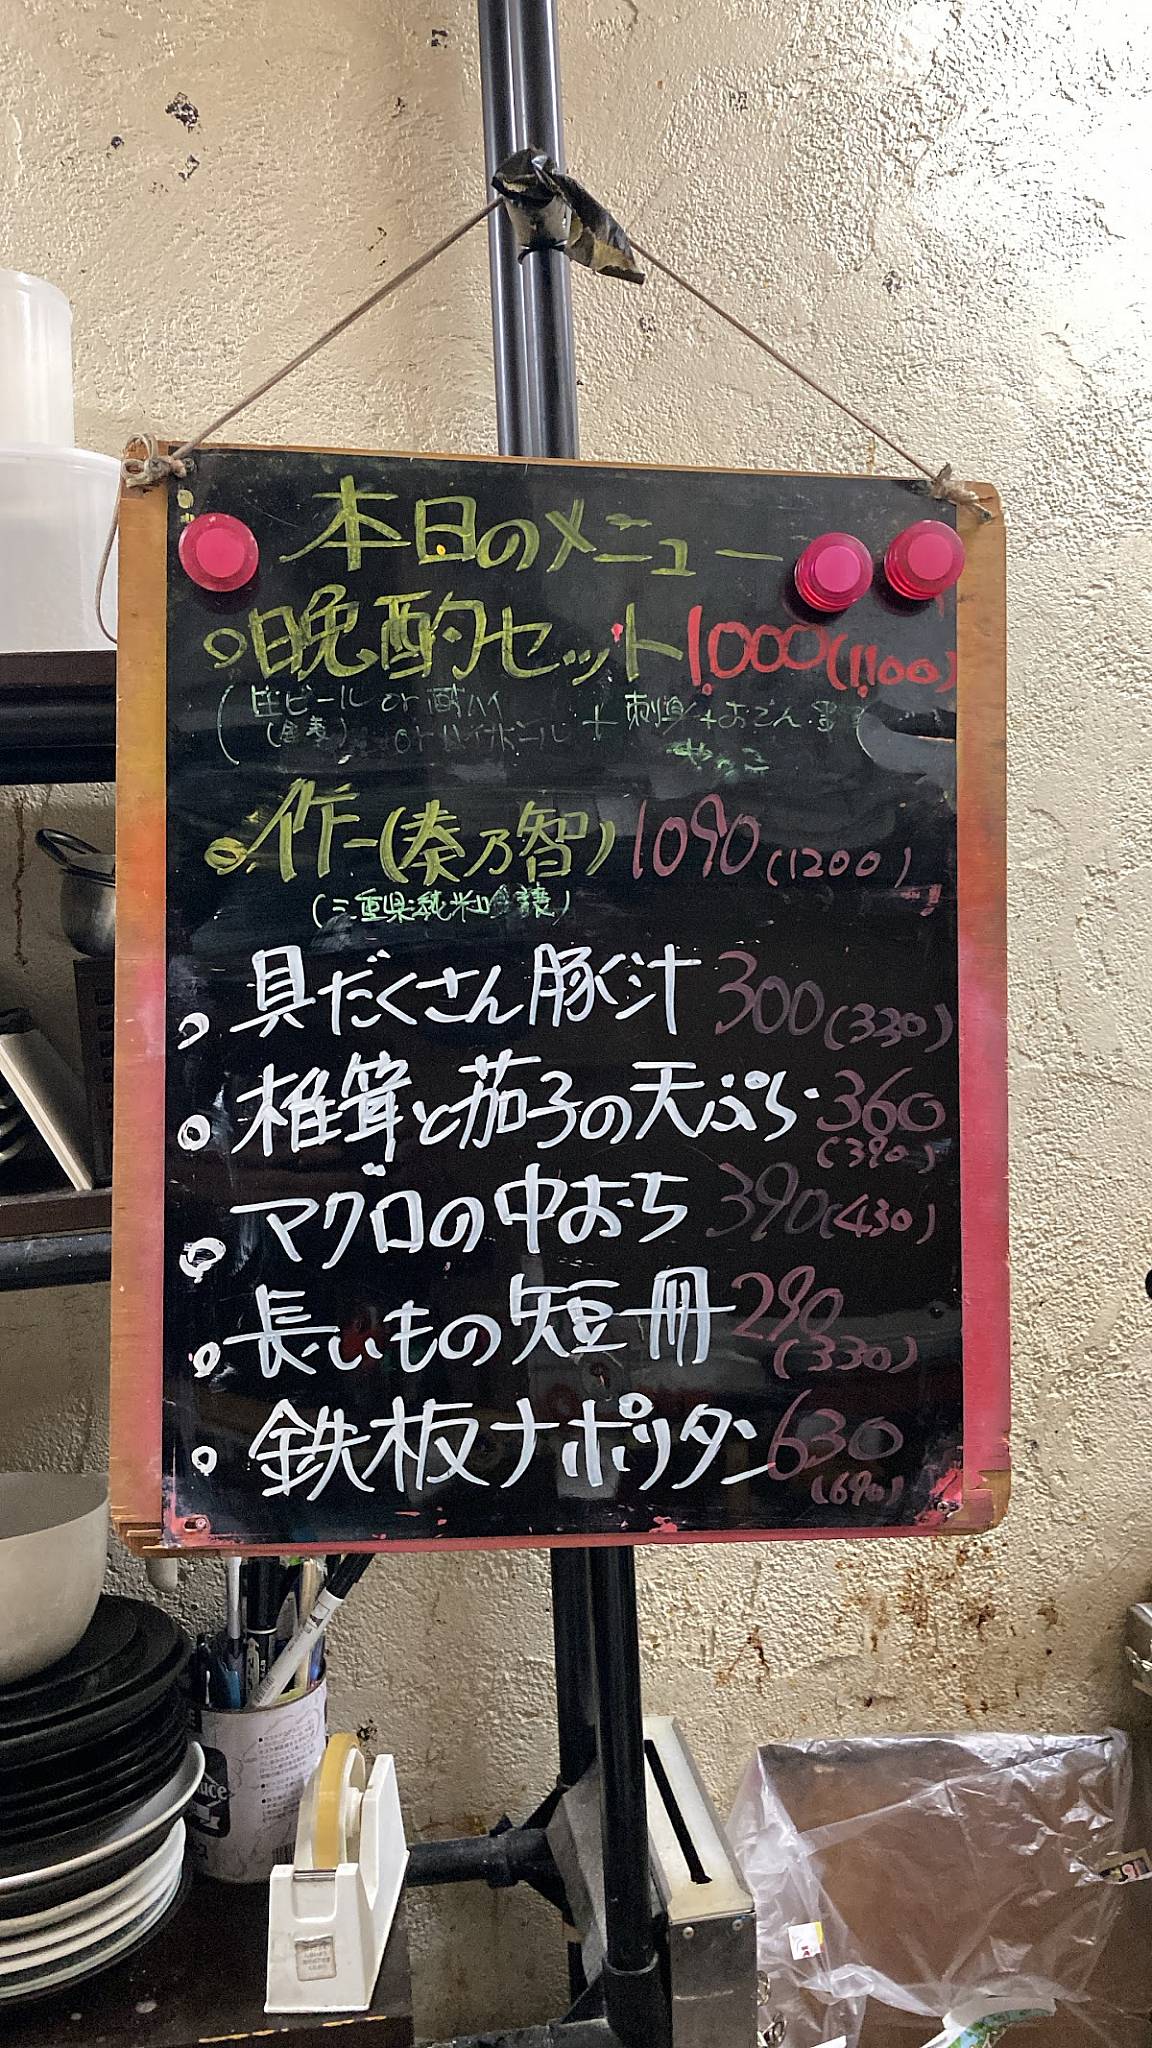 本日のメニュー
晩酌セット 1,000(1,100)
(生ビール or 酎ハイ + 刺身+おでん
or ハイボール
作(奏乃智) 1090(1200)
(三重県純米吟醸)
具だくさん豚汁 300(330)
椎茸と茄子の天ぷら 360
(390)
マグロの中おち 390(430)
長いもの短冊 290
(330)
鉄板ナポリタン 630
(690)